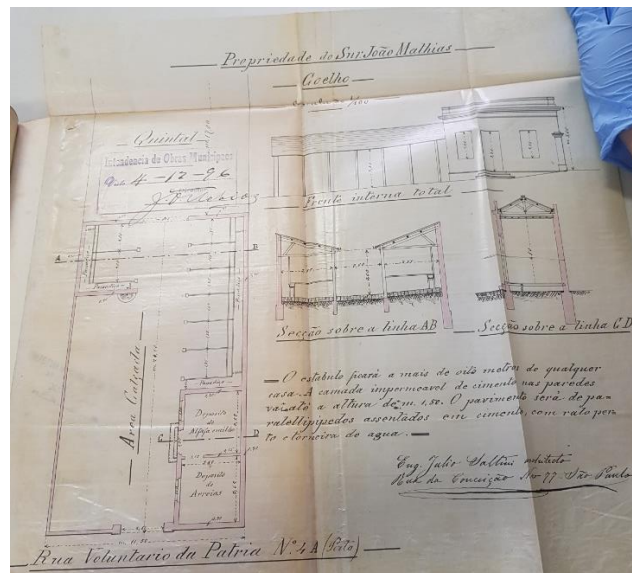 Propriedade do Snr. João Mathias
Goelho
Quintal
Intendencia de Obras Municipaes
4-12-96
Frente interna total
Secção sobre a linha AB
Secção sobre a linha C.D
A
B
Area Calçada
Deposito
de
Alfafa
C
D
Deposito
de
Arreios
— O estabulo ficará a mais de oito metros de qualquer
casa. A camada impermeavel de cimento nas paredes
vai até a altura de m. 1,50. O pavimento será de pa-
rallelipipedos assentados em cimento, com ralo per-
to e torneira de agua. —
Eng. Julio Saltini
Rua da Conceição No 97 São Paulo
Rua Voluntario da Patria Nº 4 A (Perto)